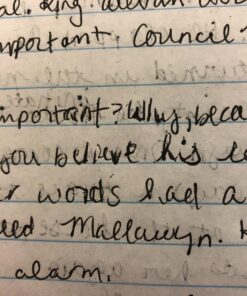 al. King
mportant. Council
mportant? Why, beca
you believe his
r words had a
ed Mallawyn.
alarm.